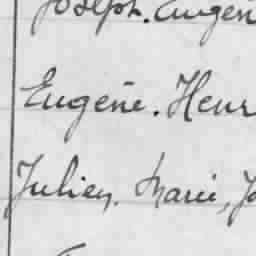 Joseph. Eugèn
Eugène. Henr
Julien. Marie, Jo